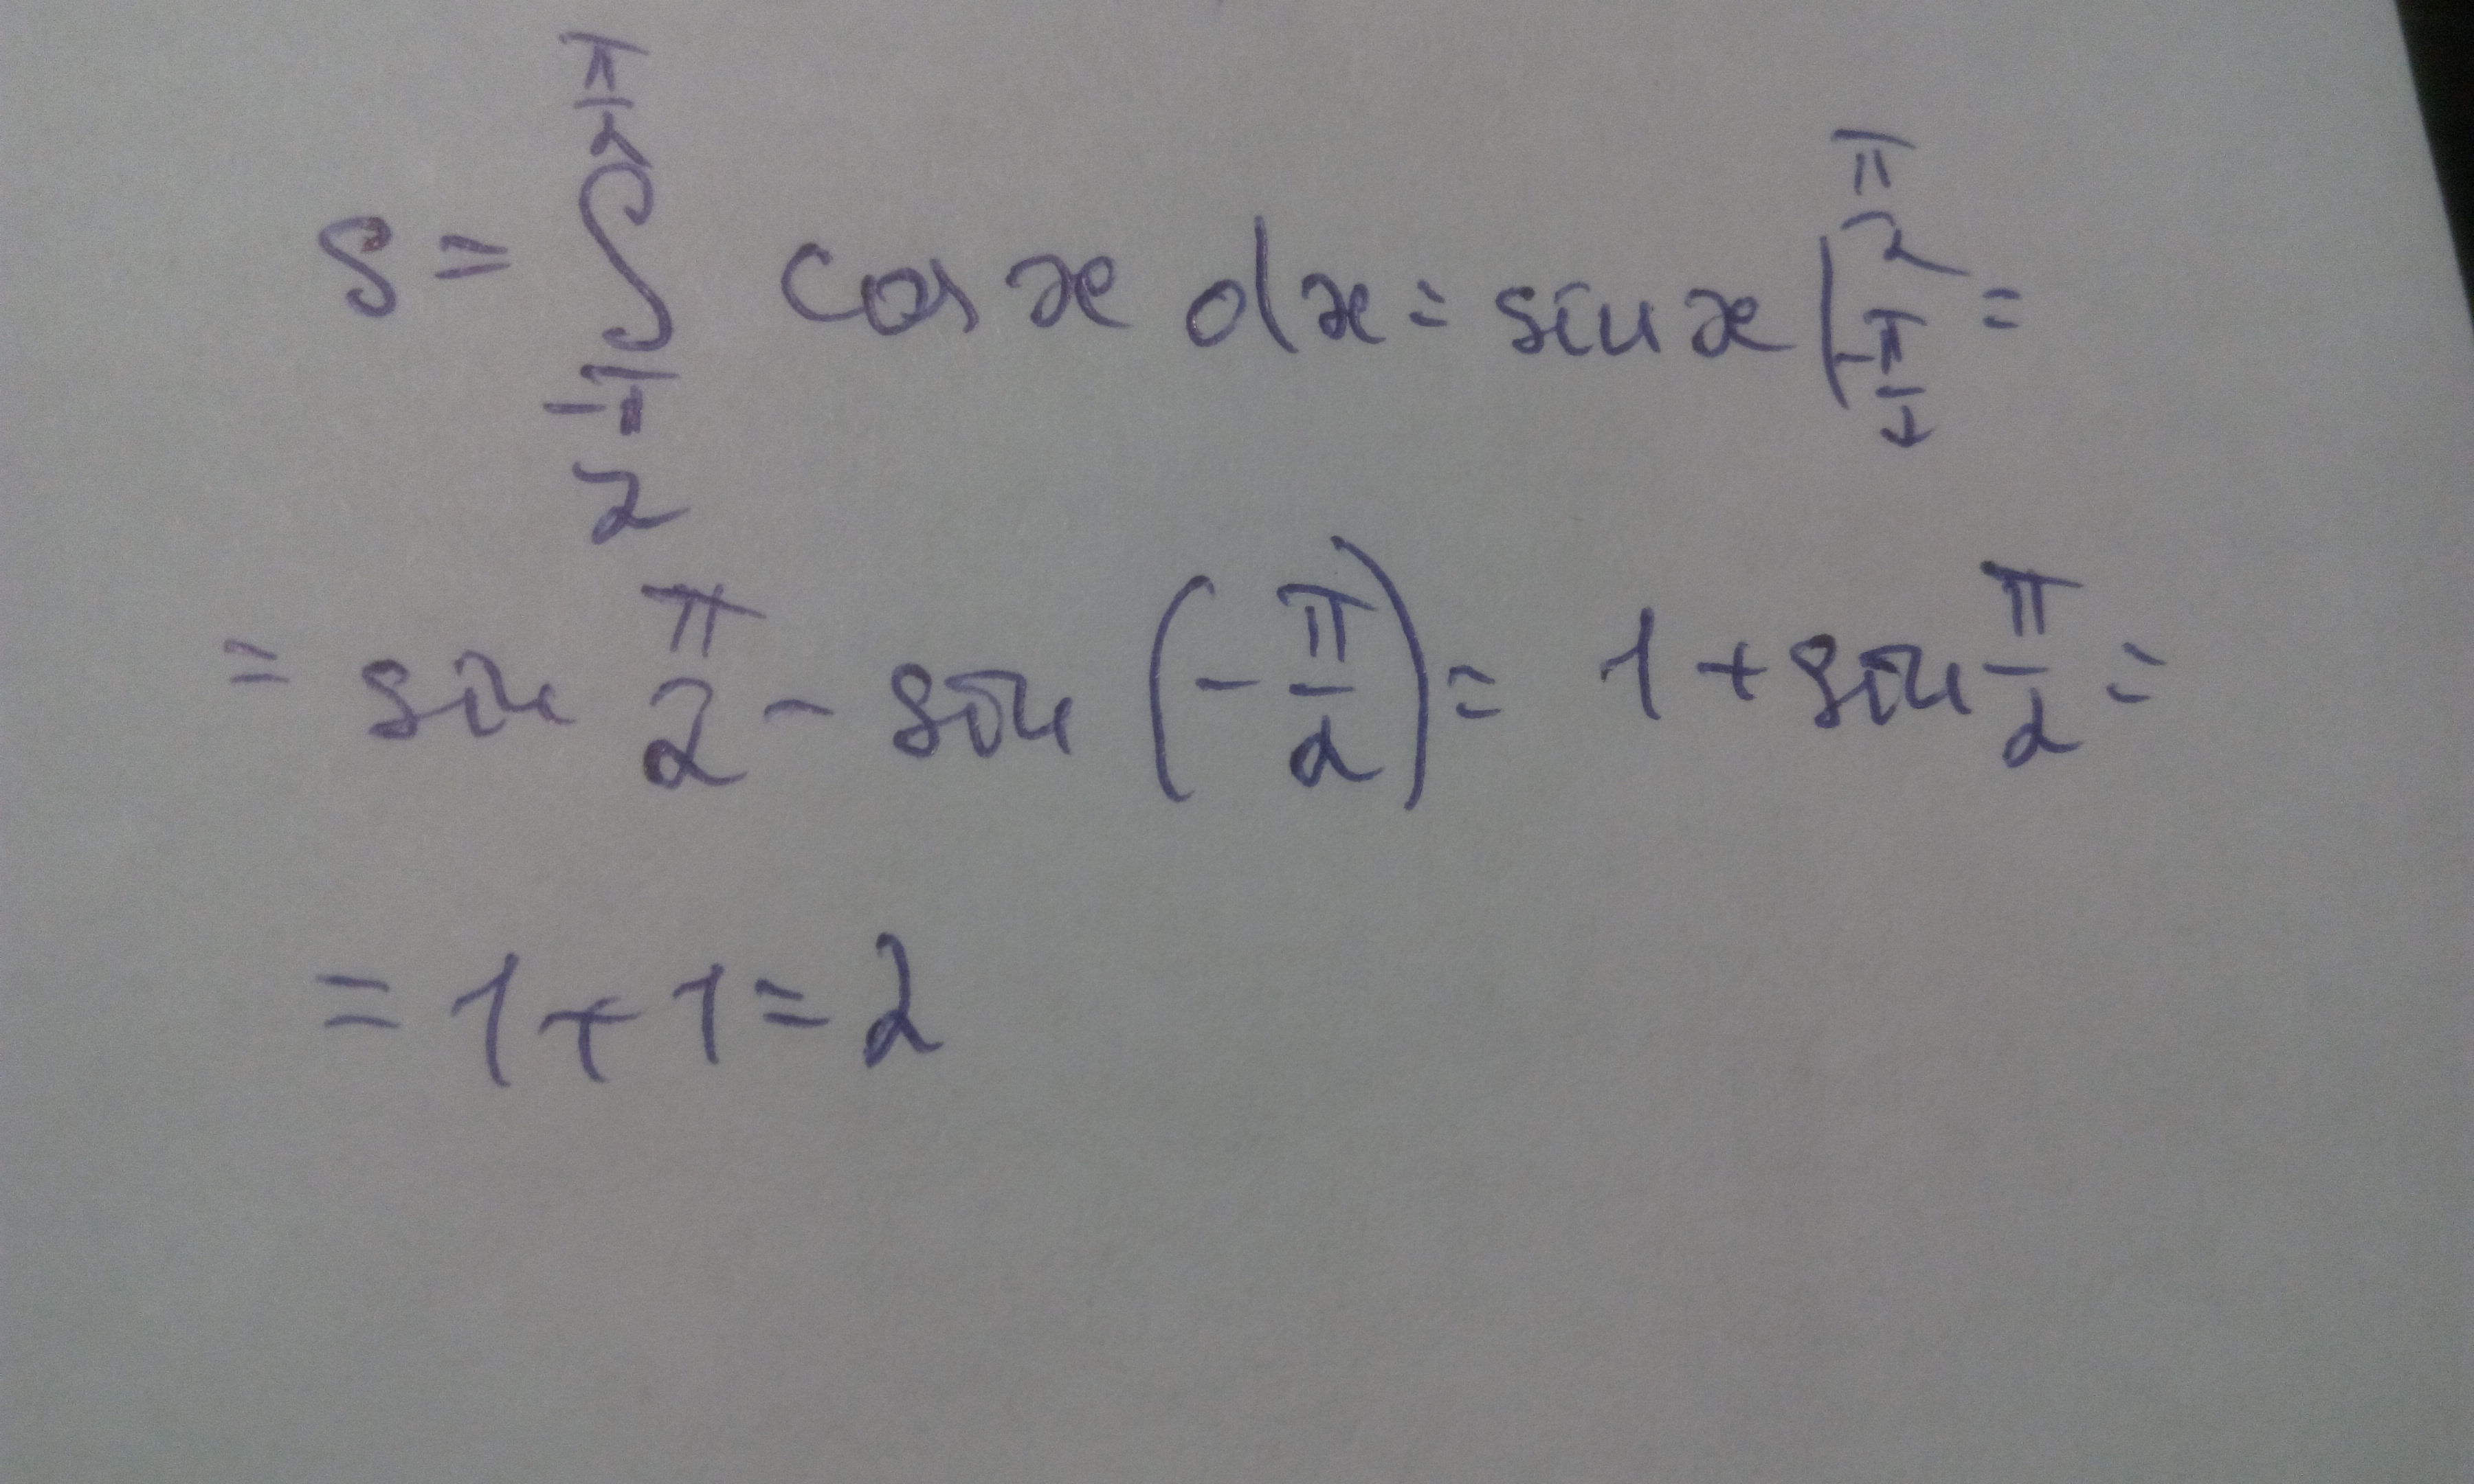 S = ∫_{-π/2}^{π/2} cos x dx = sin x |_{-π/2}^{π/2} =
= sin π/2 - sin (-π/2) = 1 + sin π/2 =
= 1 + 1 = 2